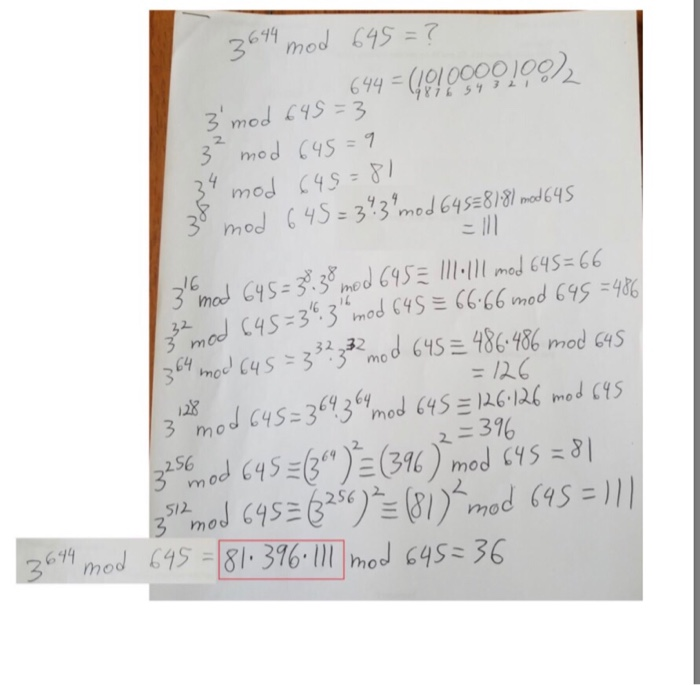 3^644 mod 645 = ?
644 = (1010000100)_2
9 8 7 6 5 4 3 2 1 0
3^1 mod 645 = 3
3^2 mod 645 = 9
3^4 mod 645 = 81
3^8 mod 645 = 3^4·3^4 mod 645 ≡ 81·81 mod 645
= 111
3^16 mod 645 = 3^8·3^8 mod 645 ≡ 111·111 mod 645 = 66
3^32 mod 645 = 3^16·3^16 mod 645 ≡ 66·66 mod 645 = 486
3^64 mod 645 = 3^32·3^32 mod 645 ≡ 486·486 mod 645
= 126
3^128 mod 645 = 3^64·3^64 mod 645 ≡ 126·126 mod 645
= 396
3^256 mod 645 ≡ (3^64)^2 ≡ (396)^2 mod 645 = 81
3^512 mod 645 ≡ (3^256)^2 ≡ (81)^2 mod 645 = 111
3^644 mod 645 = 81·396·111 mod 645 = 36